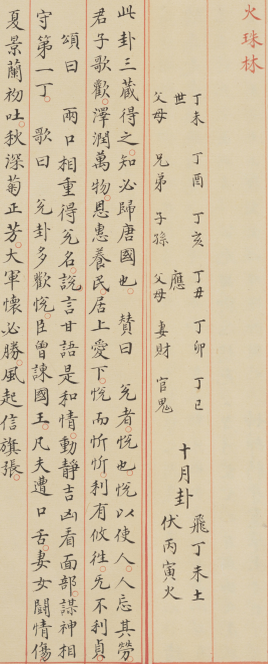 火珠林
丁未 丁酉 丁亥 丁丑 丁卯 丁巳
世 應
父母 兄弟 子孫 父母 妻財 官鬼
十月卦 飛丁未土
伏丙寅火
此卦三藏得之知必歸唐國也 贊曰 兌者悅也悅以使人人忘其勞
君子歌歡澤潤萬物恩惠養民居上愛下悅而忻忻利有攸往旡不利貞
頌曰 兩口相重得兌名說言甘語是和情動靜吉凶看面部謀神相
守第一丁 歌曰 兌卦多歡悅臣曾諫國王凡夫遭口舌妻女鬬情傷
夏景蘭初吐秋深菊正芳大軍懷必勝風起信旗張